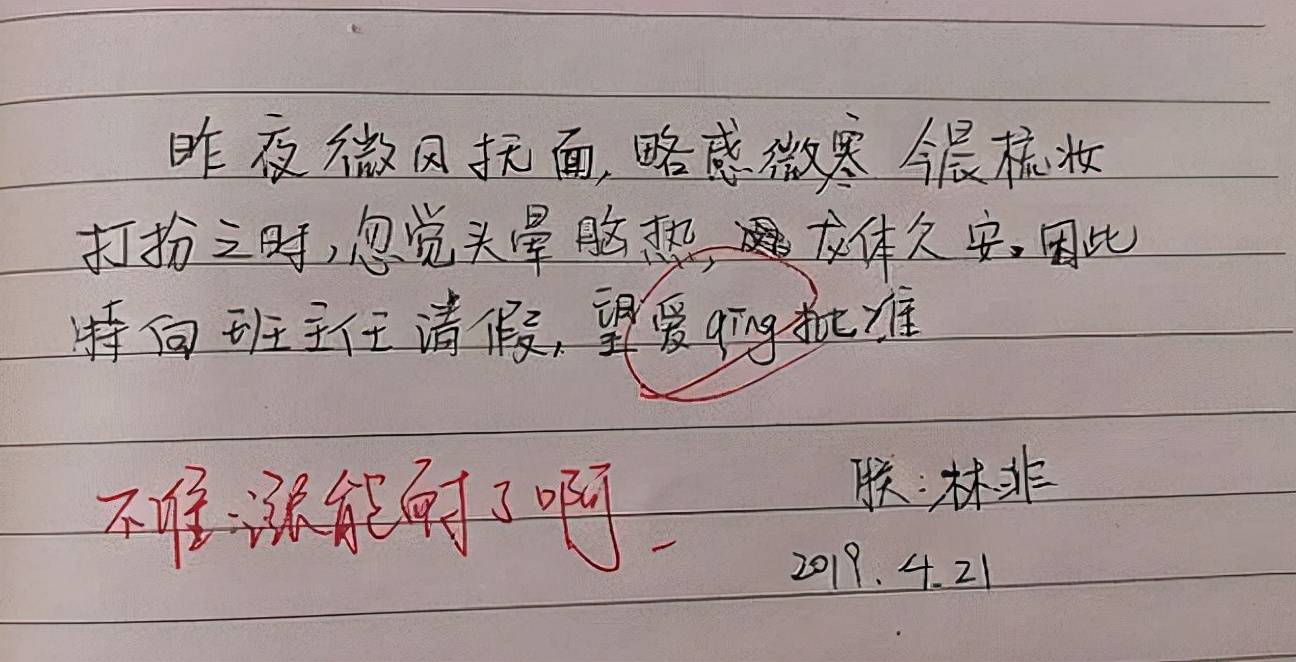 昨夜微风抚面,略感微寒 今晨梳妆
打扮之时,忽觉头晕脑热, 龙体欠安。因此
特向班主任请假,望爱qīng批准
不准:涨能耐了啊
朕:林非
2019.4.21